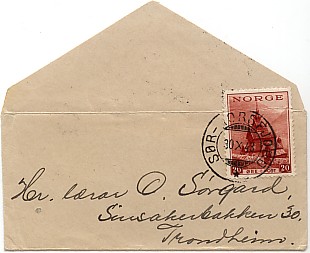 NORGE
20 20
30.XI
Hr. lærar O. Sörgard,
Sinsakerbakken 30.
Trondheim.